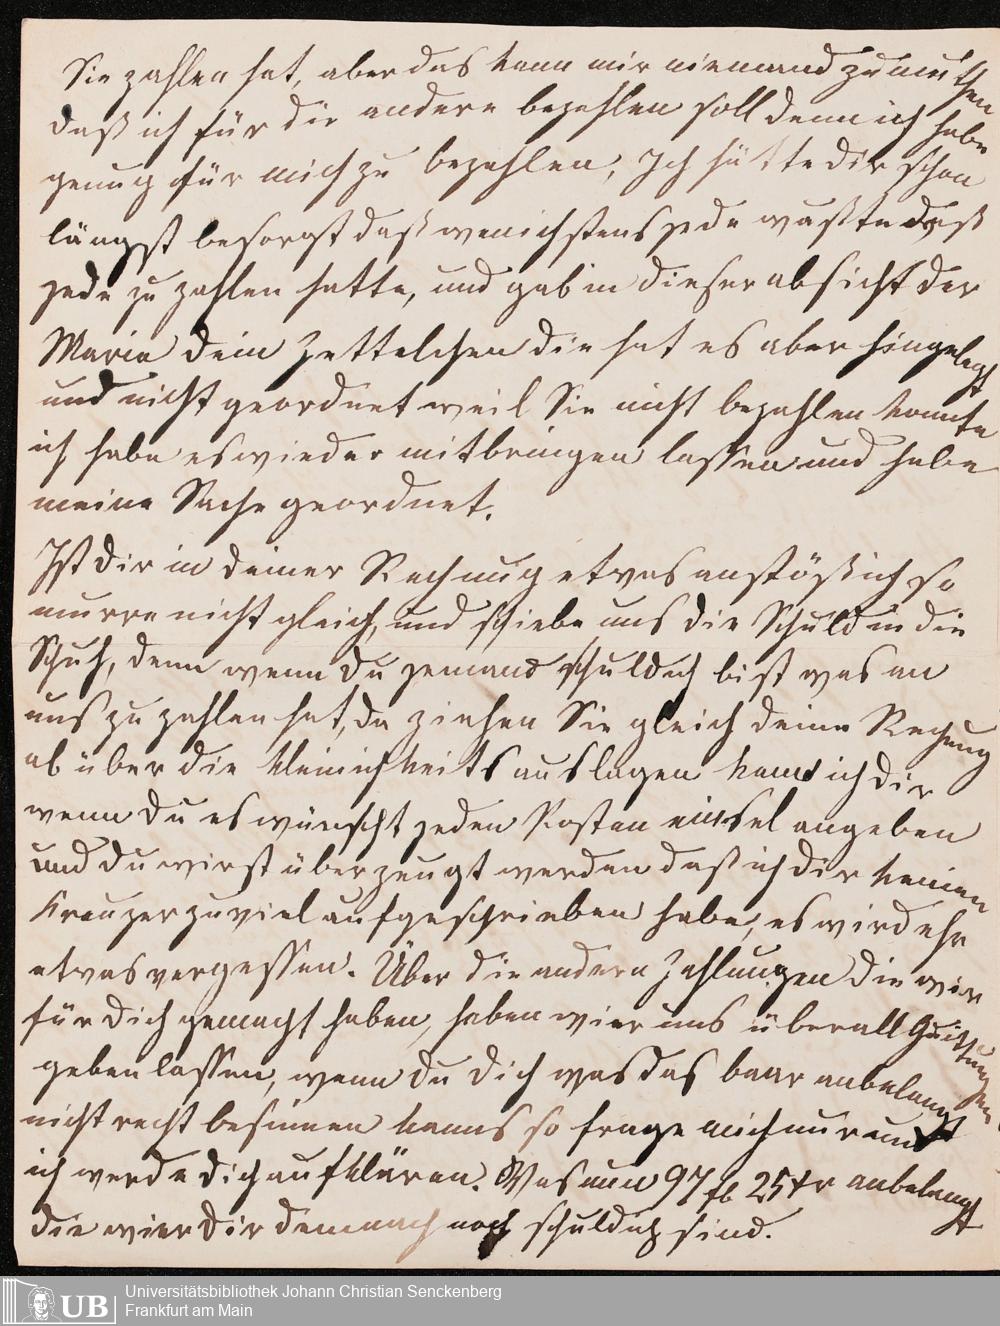 Sie zahlen hat, aber das kann mir niemand zumuthen
daß ich für die andere bezahlen soll denn ich habe
genug für mich zu bezahlen, Ich hätte dir schon
längst besorgt daß wenichstens jede wußte daß
jede zu zahlen hatte, und gab in dieser absicht der
Marie dein Zettelchen die hat es aber hingelegt
und nicht geordnet weil Sie nicht bezahlen konnte
ich habe es wieder mitbringen lassen und habe
meine Sache geordnet.
Ist dir in deiner Rechnug etwas anstößich so
murre nicht gleich, und schiebe uns die Schuld in die
Schuh, denn wenn du jemand schuldich bist was an
uns zu zahlen hat, da ziehen Sie gleich deine Rechnung
ab über die kleinichkeits auslagen kann ich dir
wenn du es wünscht jeden Posten einsel angeben
und du wirst überzeugt werden daß ich dir keinen
Kreuzer zuviel aufgeschrieben habe, es wird ehr
etwas vergessen. Über die andern Zahlungen die wir
für dich gemacht haben, haben wier uns überall Quittungen
geben lassen, wenn du dich was das baar anbelangt
nicht recht besinnen kanns so frage mich nur und
ich werde dich aufklären. Was nun 97 fl 25 xr anbelangt
die wier dir demnach noch schuldig sind.
UB Universitätsbibliothek Johann Christian Senckenberg
Frankfurt am Main